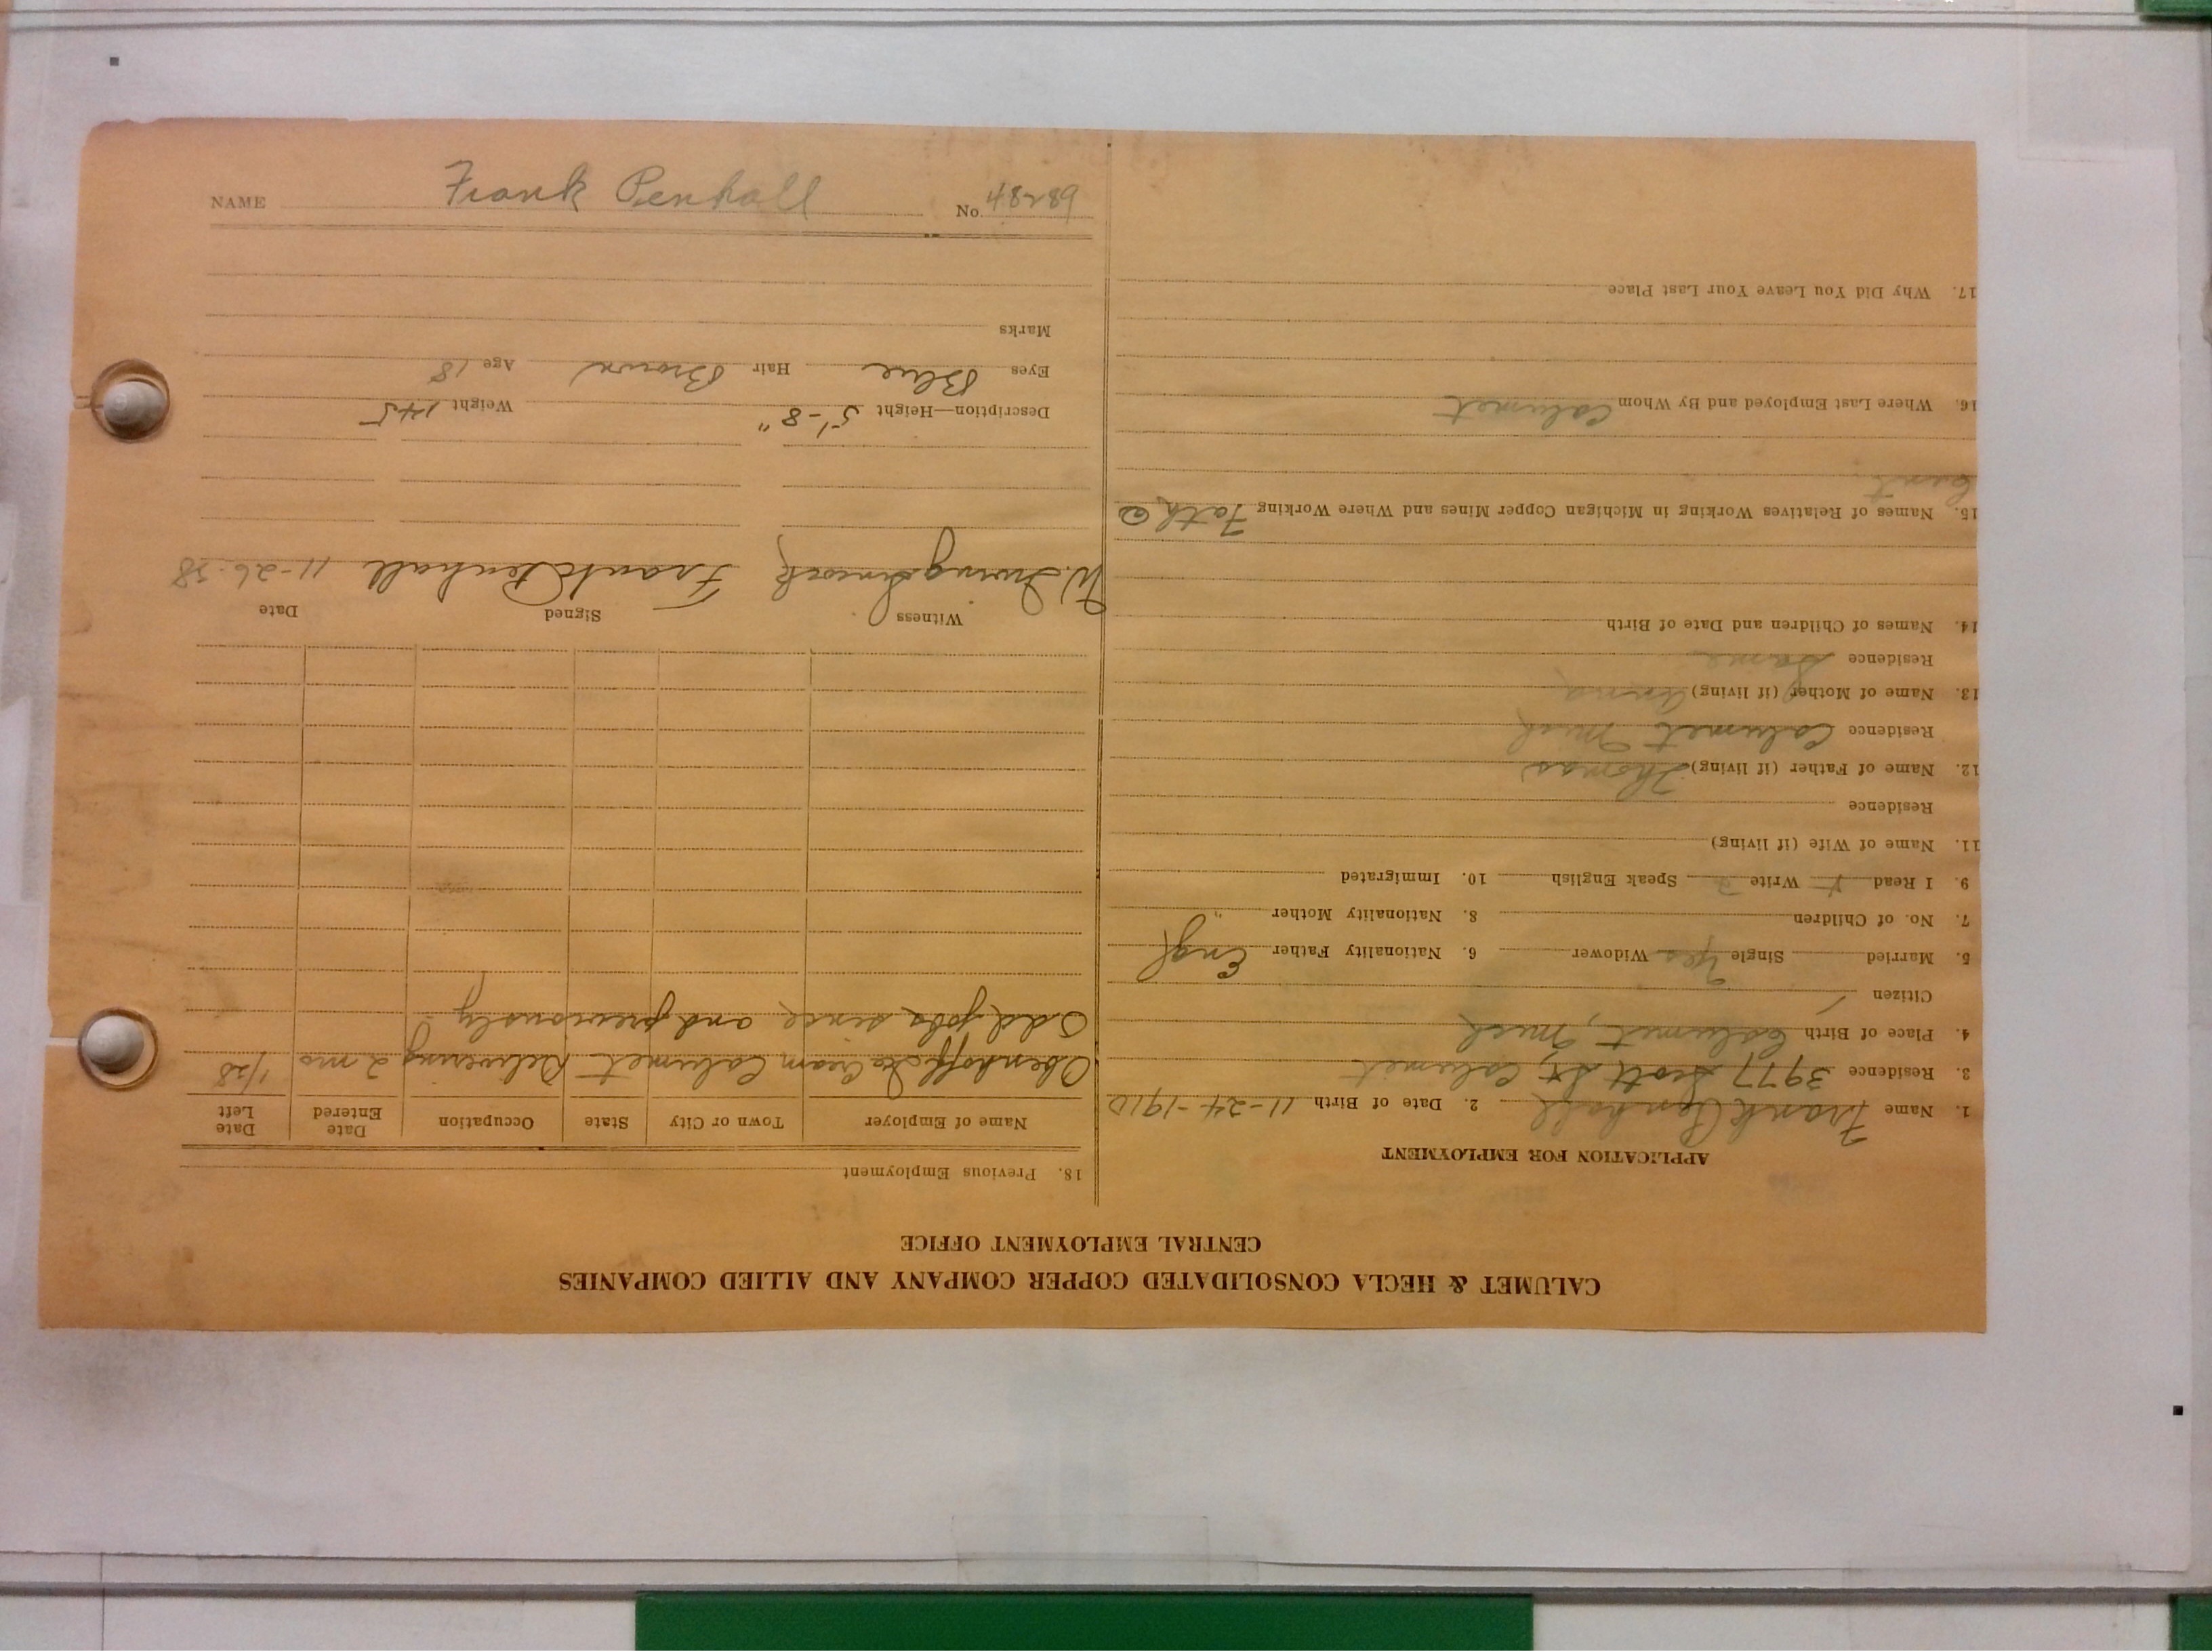 CALUMET & HECLA CONSOLIDATED COPPER COMPANY AND ALLIED COMPANIES
CENTRAL EMPLOYMENT OFFICE
APPLICATION FOR EMPLOYMENT
1. Name Frank Penhall 2. Date of Birth 11-24-1910
3. Residence 3977 Scott St, Calumet
4. Place of Birth Calumet, Mich
Citizen
5. Married Single Yes Widower 6. Nationality Father Engl
7. No. of Children 8. Nationality Mother "
9. I Read Write Speak English 10. Immigrated
11. Name of Wife (if living)
Residence
12. Name of Father (if living) Thomas
Residence Calumet Mich
13. Name of Mother (if living) Anna
Residence Same
14. Names of Children and Date of Birth
15. Names of Relatives Working in Michigan Copper Mines and Where Working Fath @
16. Where Last Employed and By Whom Calumet
17. Why Did You Leave Your Last Place
18. Previous Employment
Name of Employer Town or City State Occupation Date Entered Date Left
Ice Cream Calumet Delivering 2 mo 1/28
Odd jobs since and previously
Witness Signed Date
W. Frank Penhall 11-26-
Description—Height 5'-8" Weight 145
Eyes Blue Hair Brown Age 18
Marks
NAME Frank Penhall No. 48289